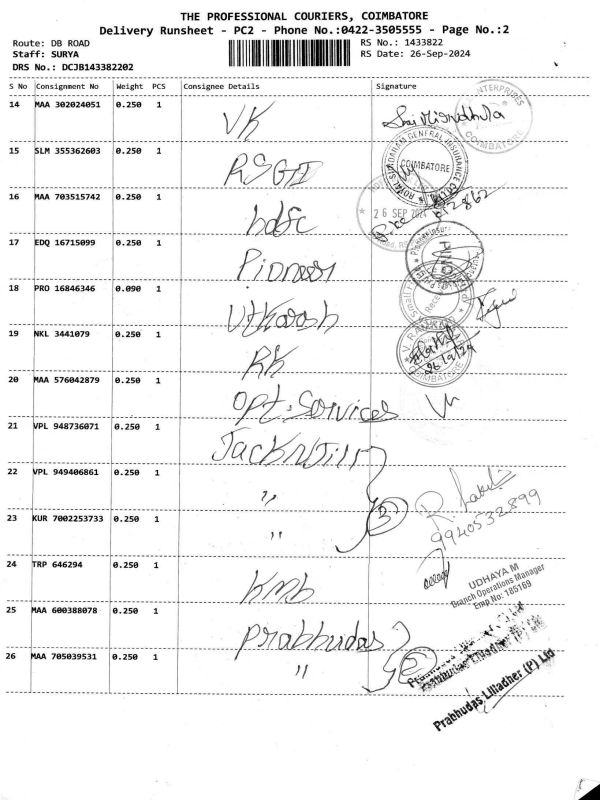 THE PROFESSIONAL COURIERS, COIMBATORE
Delivery Runsheet - PC2 - Phone No.:0422-3505555 - Page No.:2
Route: DB ROAD
Staff: SURYA
DRS No.: DCJB143382202
RS No.: 1433822
RS Date: 26-Sep-2024
S No Consignment No Weight PCS Consignee Details Signature
14 MAA 302024051 0.250 1 VK
ENTERPRISES
COIMBATORE
15 SLM 355362603 0.250 1 RSGI
ROYAL SUNDARAM GENERAL INSURANCE
COIMBATORE
16 MAA 703515742 0.250 1 hdfc
26 SEP 2024
17 EDQ 16715099 0.250 1 Pioneer
18 PRO 16846346 0.090 1 Utkarsh
Small
19 NKL 3441079 0.250 1 RK
26/9/24
COIMBATORE
20 MAA 576042879 0.250 1 opt. Services
21 VPL 948736071 0.250 1 Jack N Jill
22 VPL 949406861 0.250 1 "
23 KUR 7002253733 0.250 1 "
3
9940532899
24 TRP 646294 0.250 1 Kmb
UDHAYA M
Branch Operations Manager
Emp No: 185169
25 MAA 600388078 0.250 1 Prabhudas
26 MAA 705039531 0.250 1 "
2
Prabhudas Lilladher (P) Ltd
Prabhudas Lilladher (P) Ltd